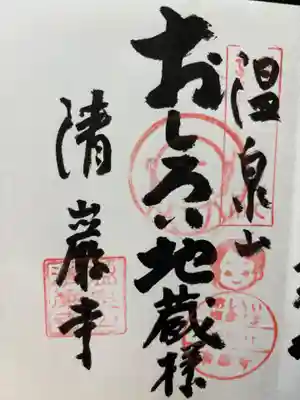 温泉山
おしろい地蔵様
清巖寺